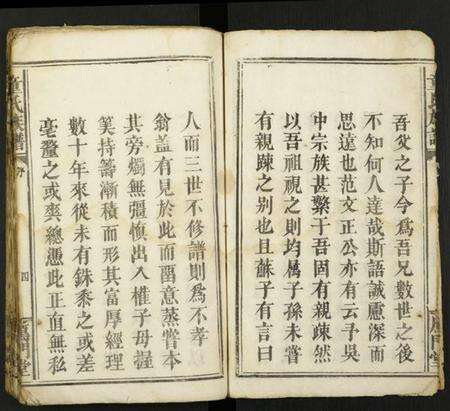 吾父之子今爲吾兄數世之後
不知何人達哉斯語誠慮深而
思遠也范文正公亦有云予吳
中宗族甚繁于吾固有親疎然
以吾祖視之則均属子孫未嘗
有親踈之别也且蘇子有言曰
童氏族譜
序
四
人而三世不修譜則爲不孝
翁盖有見於此而畱意蒸嘗本
其旁燭無彊慎出入權子母握
筭持籌漸積而形其富厚經理
數十年來從未有銖黍之或差
毫釐之或爽總憑此正直無私